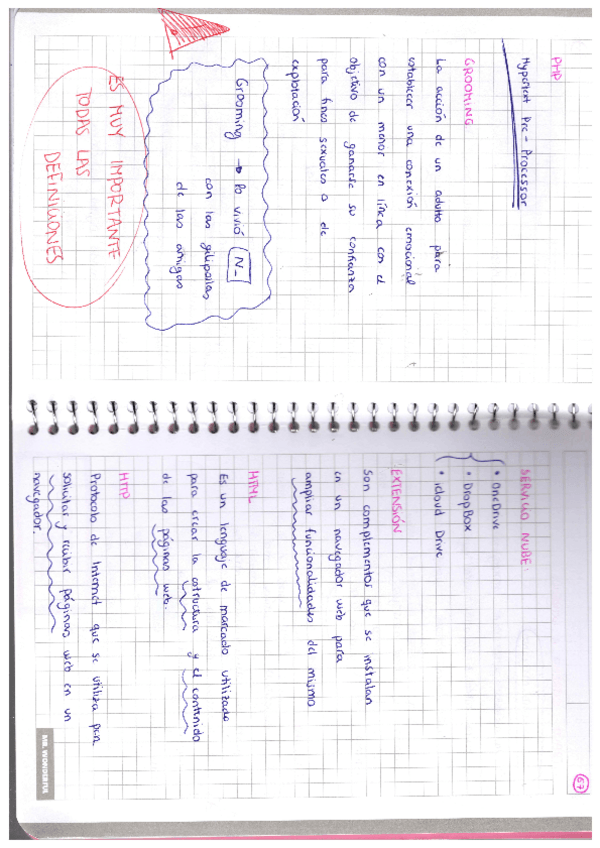 PHP
Hypertext Pre-Processor
GROOMING
La acción de un adulto para
establecer una conexión emocional
con un menor en línea con el
objetivo de ganarse su confianza
para fines sexuales o de
explotación
Grooming → lo vivió N_
con las gilipollas
de las amigas
ES MUY IMPORTANTE
TODAS LAS
DEFINICIONES
67
SERVICIO NUBE:
• OneDrive
• DropBox
• icloud Drive
EXTENSIÓN
Son complementos que se instalan
en un navegador web para
ampliar funcionalidades del mismo
HTML
Es un lenguaje de marcado utilizado
para crear la estructura y el contenido
de las páginas web.
HTTP
Protocolo de Internet que se utiliza para
solicitar y recibir páginas web en un
navegador.
MR. WONDERFUL